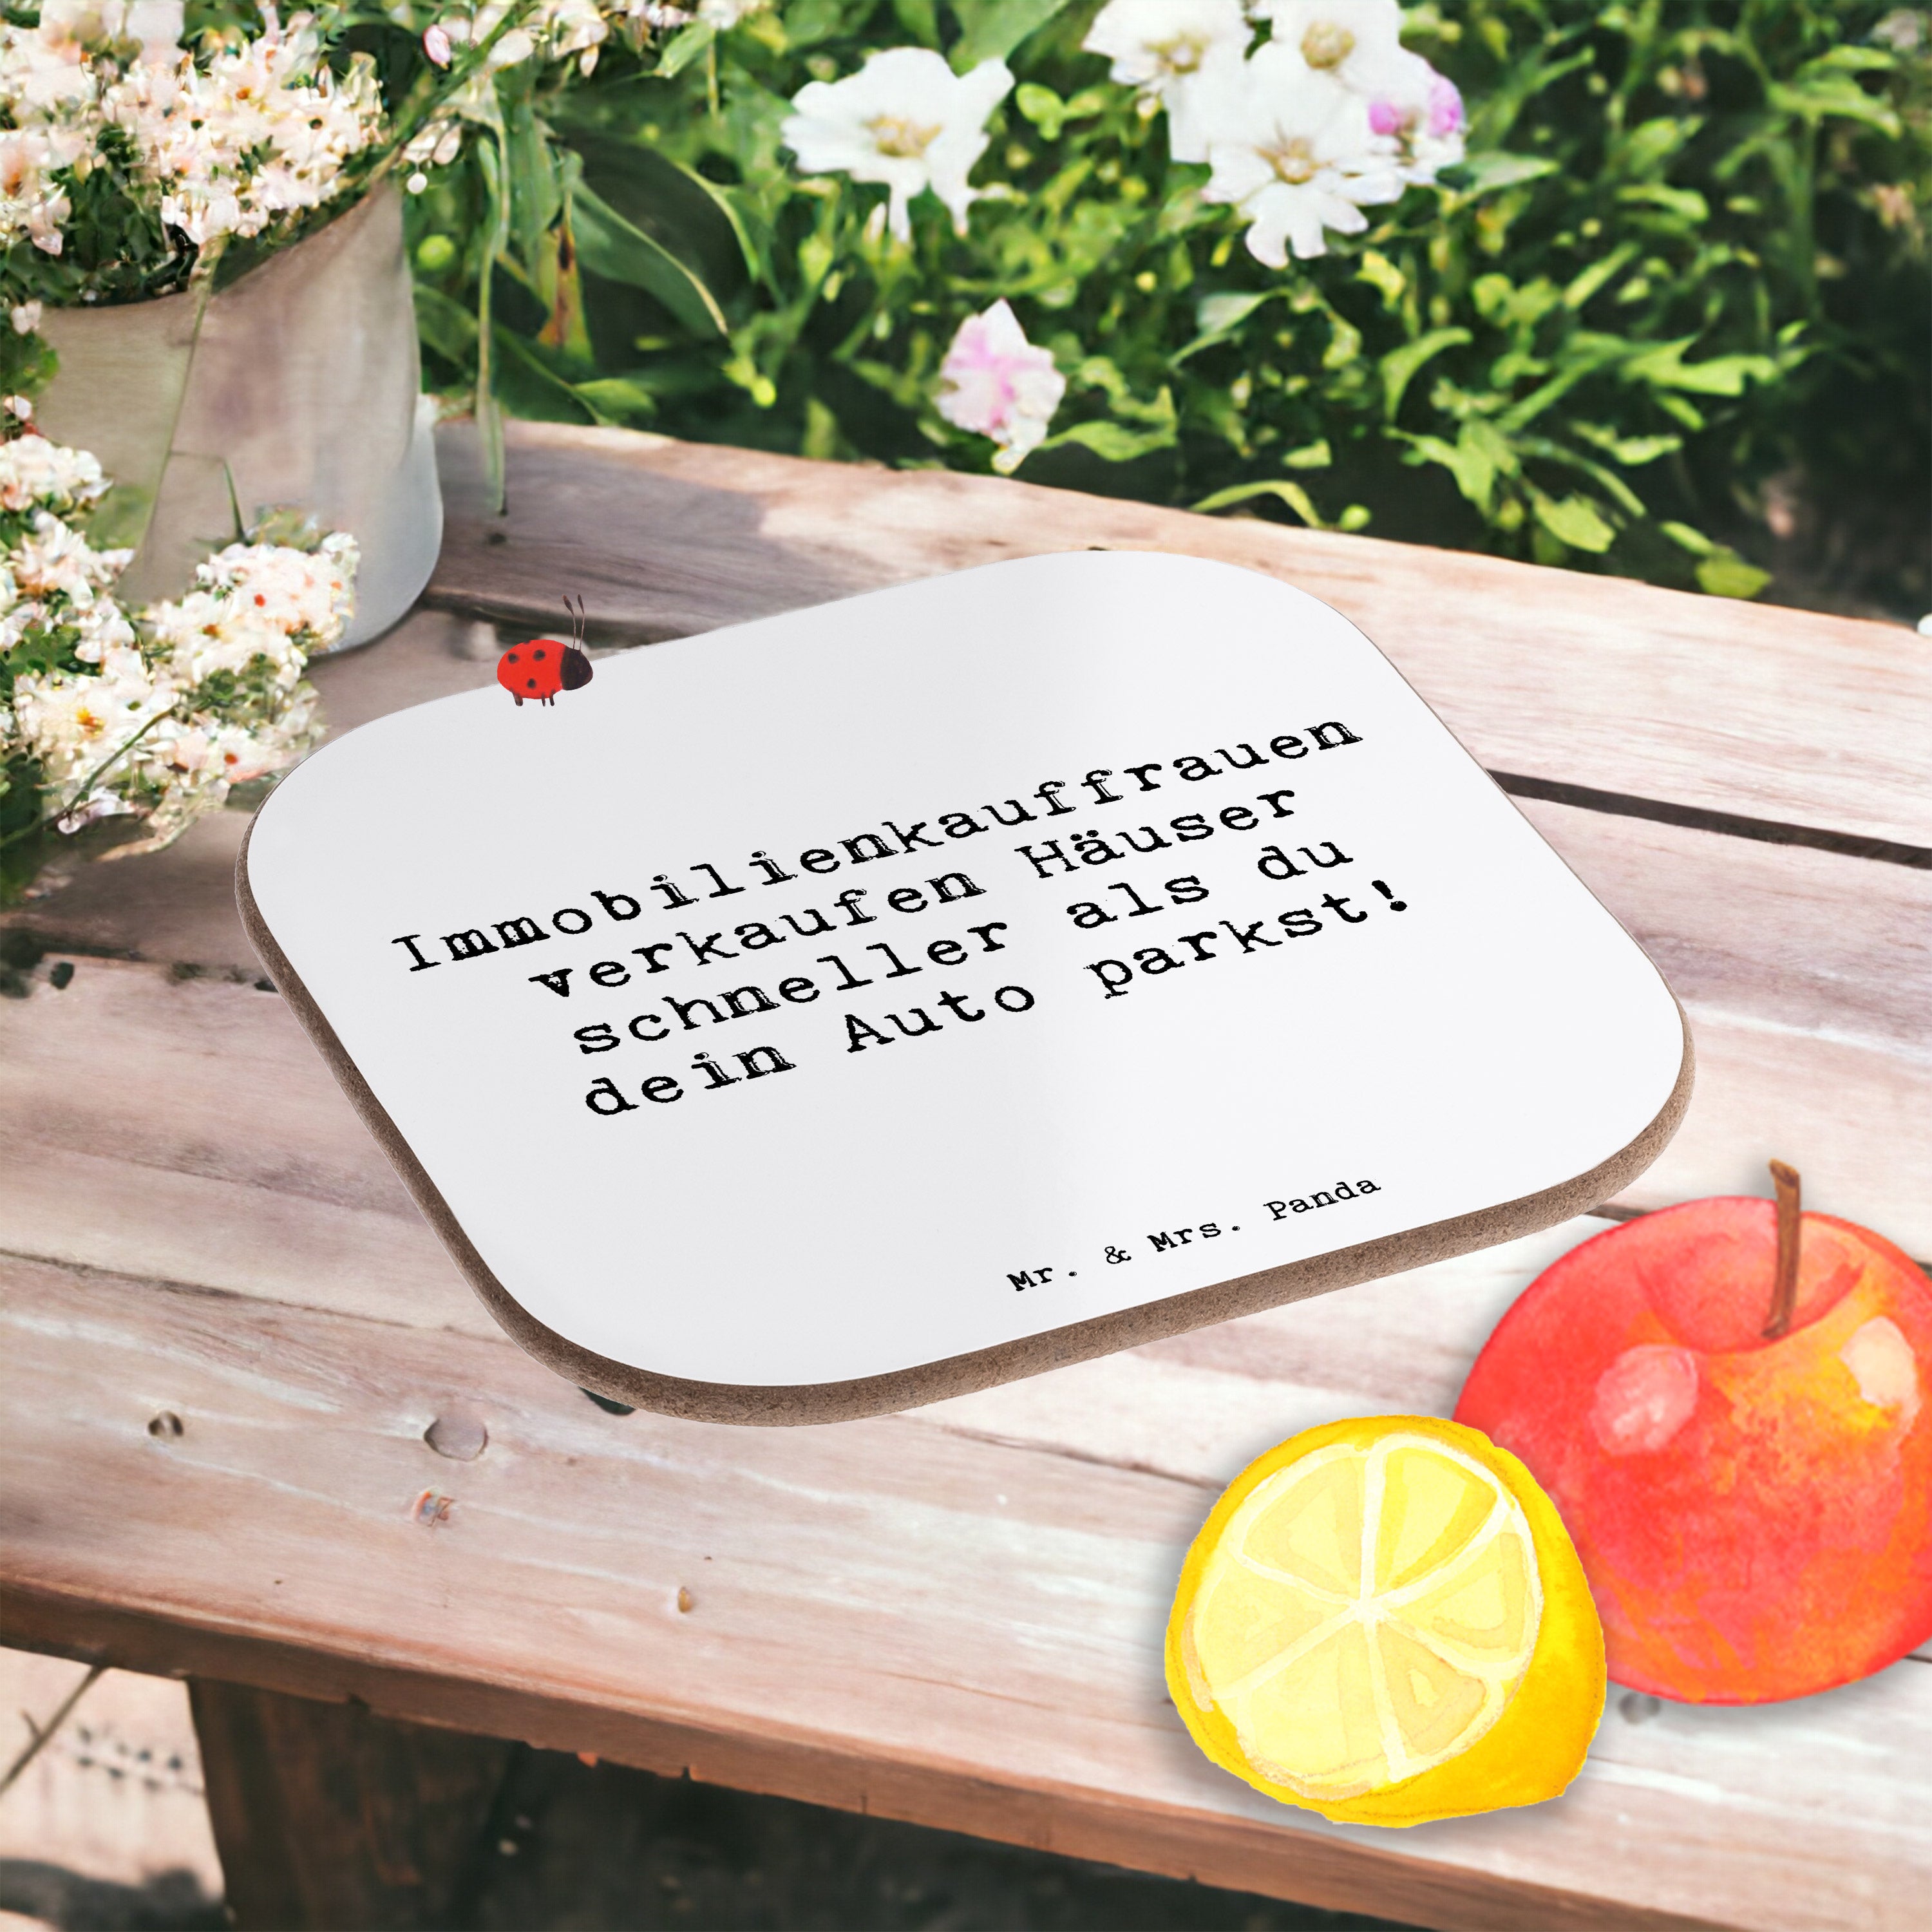 Immobilienkauffrauen
verkaufen Häuser
schneller als du
dein Auto parkst!
Mr. & Mrs. Panda